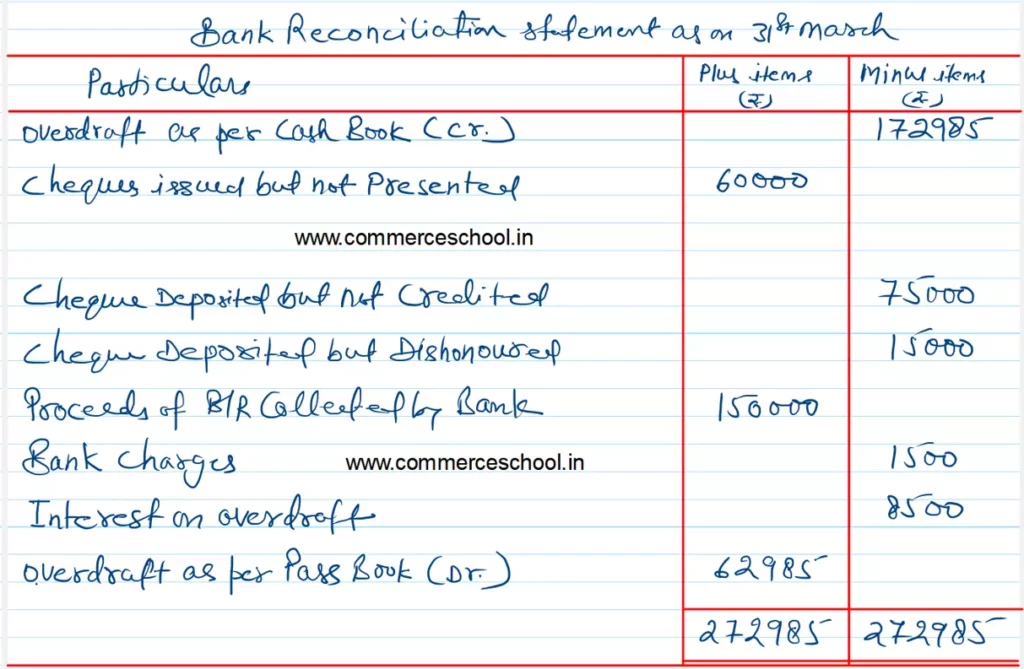 Bank Reconciliation statement as on 31st March
Particulars Plus items (₹) Minus items (₹)
overdraft as per Cash Book (Cr.) 172985
Cheques issued but not Presented 60000
www.commerceschool.in
Cheque Deposited but not Credited 75000
Cheque Deposited but Dishonoured 15000
Proceeds of B/R Collected by Bank 150000
Bank charges www.commerceschool.in 1500
Interest on overdraft 8500
overdraft as per Pass Book (Dr.) 62985
272985 272985